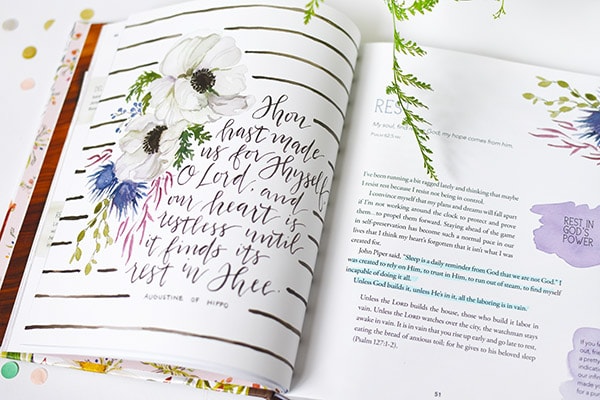 Thou
hast made
us for Thyself,
O Lord, and
our heart is
restless until
it finds its
rest in Thee.
AUGUSTINE OF HIPPO
REST
My soul, find God, my hope comes from him.
I've been running a bit ragged lately and thinking that maybe
I resist rest because I resist not being in control.
I convince myself that my plans and dreams will fall apart
if I'm not working around the clock to protect and prove
them...to propel them forward. Staying ahead of the game
in self-preservation has become such a normal pace in our
lives that I think my heart's forgotten that it isn't what I was
created for.
John Piper said, "Sleep is a daily reminder from God that we are not God." I
was created to rely on Him, to trust in Him, to run out of steam, to find myself
incapable of doing it all.
Unless God builds it, unless He's in it, all the laboring is in vain.
Unless the LORD builds the house, those who build it labor in
vain. Unless the LORD watches over the city, the watchman stays
awake in vain. It is in vain that you rise up early and go late to rest,
eating the bread of anxious toil; for he gives to his beloved sleep
(Psalm 127:1-2).
51
REST IN
GOD'S
POWER
If you f
out, frie
a pretty
indicatio
our infin
made yo
for a p